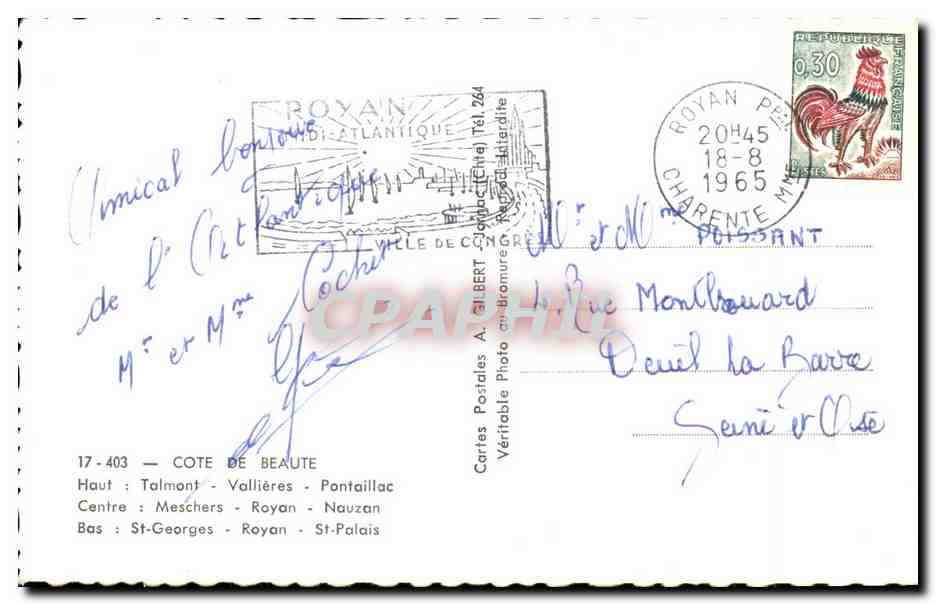 ROYAN
MIDI-ATLANTIQUE
VILLE DE CONGRÈS
ROYAN PPAL
20H45
18-8
1965
CHARENTE MME
REPUBLIQUE FRANÇAISE
0,30
POSTES
Amical bonjour
de l'Atlantique
Mr et Mme Cochet
17-403 — COTE DE BEAUTE
Haut : Talmont - Vallières - Pontaillac
Centre : Meschers - Royan - Nauzan
Bas : St-Georges - Royan - St-Palais
Cartes Postales A. GILBERT - Jarnac (Chte) Tél. 264
Véritable Photo au Bromure - Reprod. Interdite
Mr et Mme POISSANT
Rue Montbrouard
Deuil La Barre
Seine et Oise
CPAPHIL